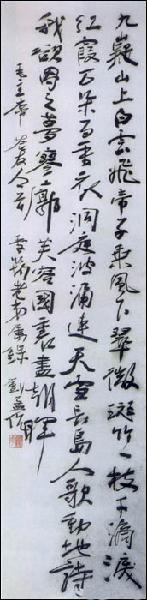 九嶷山上白雲飛帝子乘風下翠微斑竹一枝千滴淚
紅霞万朵百重衣洞庭波涌連天雪長島人歌動地詩
我欲因之夢寥廓芙蓉國裏盡朝暉
毛主席答友人
劉孟伉